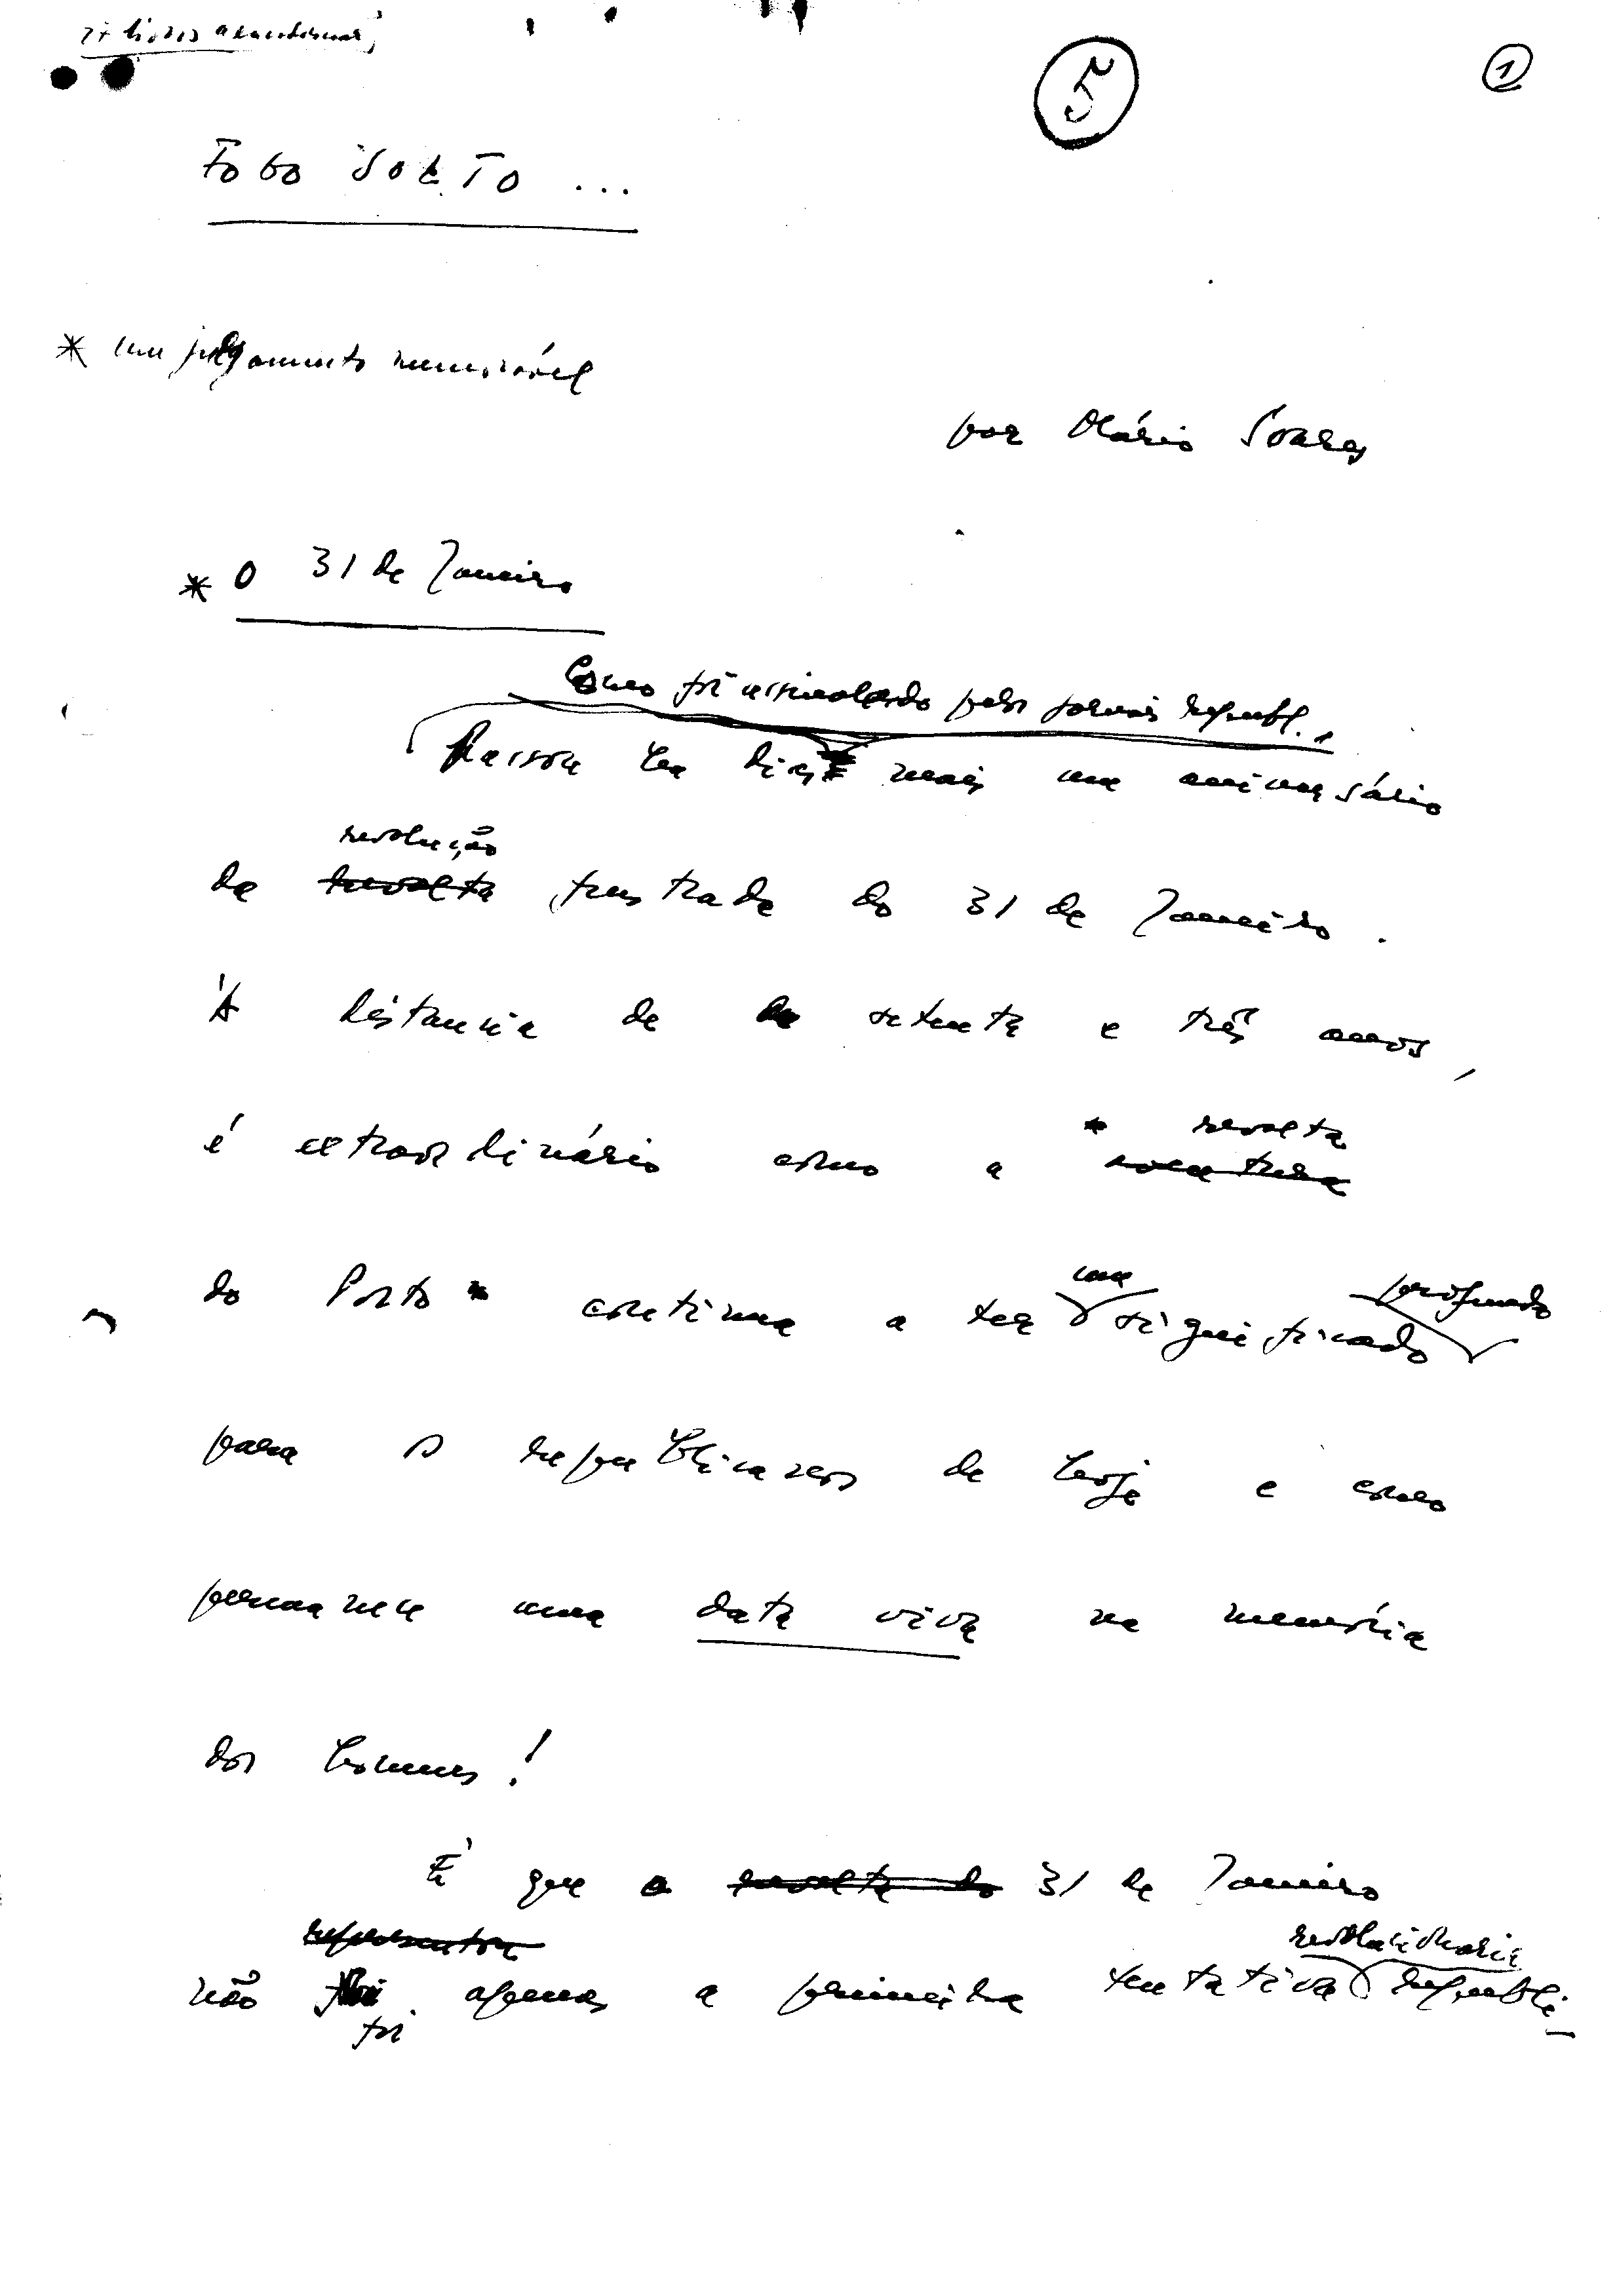 5
1
FOGO SOLTO ...
* um julgamento memorável
por Mário Soares
* O 31 de Janeiro
Como foi assinalado pelos jornais republ.,
Passou há dias mais um aniversário
revolução
da revolta frustrada do 31 de Janeiro.
À distancia de setenta e três anos,
é extraordinário como a
revolta
do Porto continua a ter significado
um profundo
para os republicanos de hoje e como
permanece uma data viva na memória
dos homens!
É que o revolta do 31 de Janeiro
representou revolucionária
não foi apenas a primeira tentativa republi-
foi